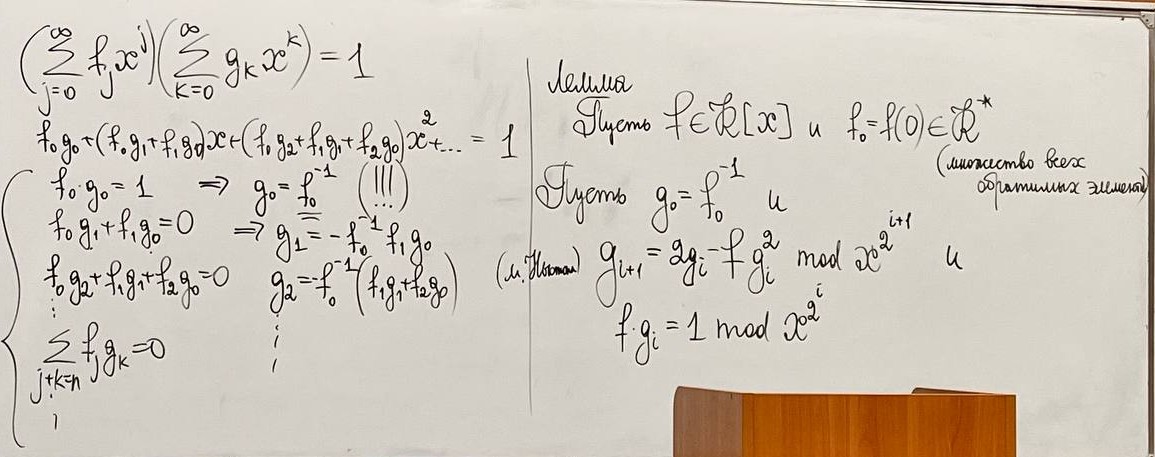 (∑_{j=0}^{∞} f_j x^j)(∑_{k=0}^{∞} g_k x^k) = 1
f_0 g_0 + (f_0 g_1 + f_1 g_0)x + (f_0 g_2 + f_1 g_1 + f_2 g_0)x^2 + ... = 1
f_0 · g_0 = 1 ⇒ g_0 = f_0^{-1} (!!!)
f_0 g_1 + f_1 g_0 = 0 ⇒ g_1 = -f_0^{-1} f_1 g_0
f_0 g_2 + f_1 g_1 + f_2 g_0 = 0 g_2 = -f_0^{-1}(f_1 g_1 + f_2 g_0)
⋮ ⋮
∑_{j+k=n} f_j g_k = 0
⋮
Лемма
Пусть f ∈ R[x] и f_0 = f(0) ∈ R^*
(множество всех
обратимых элементов)
Пусть g_0 = f_0^{-1} и
(м. Ньютона) g_{i+1} = 2g_i - f g_i^2 mod x^{2^{i+1}} и
f · g_i = 1 mod x^{2^i}